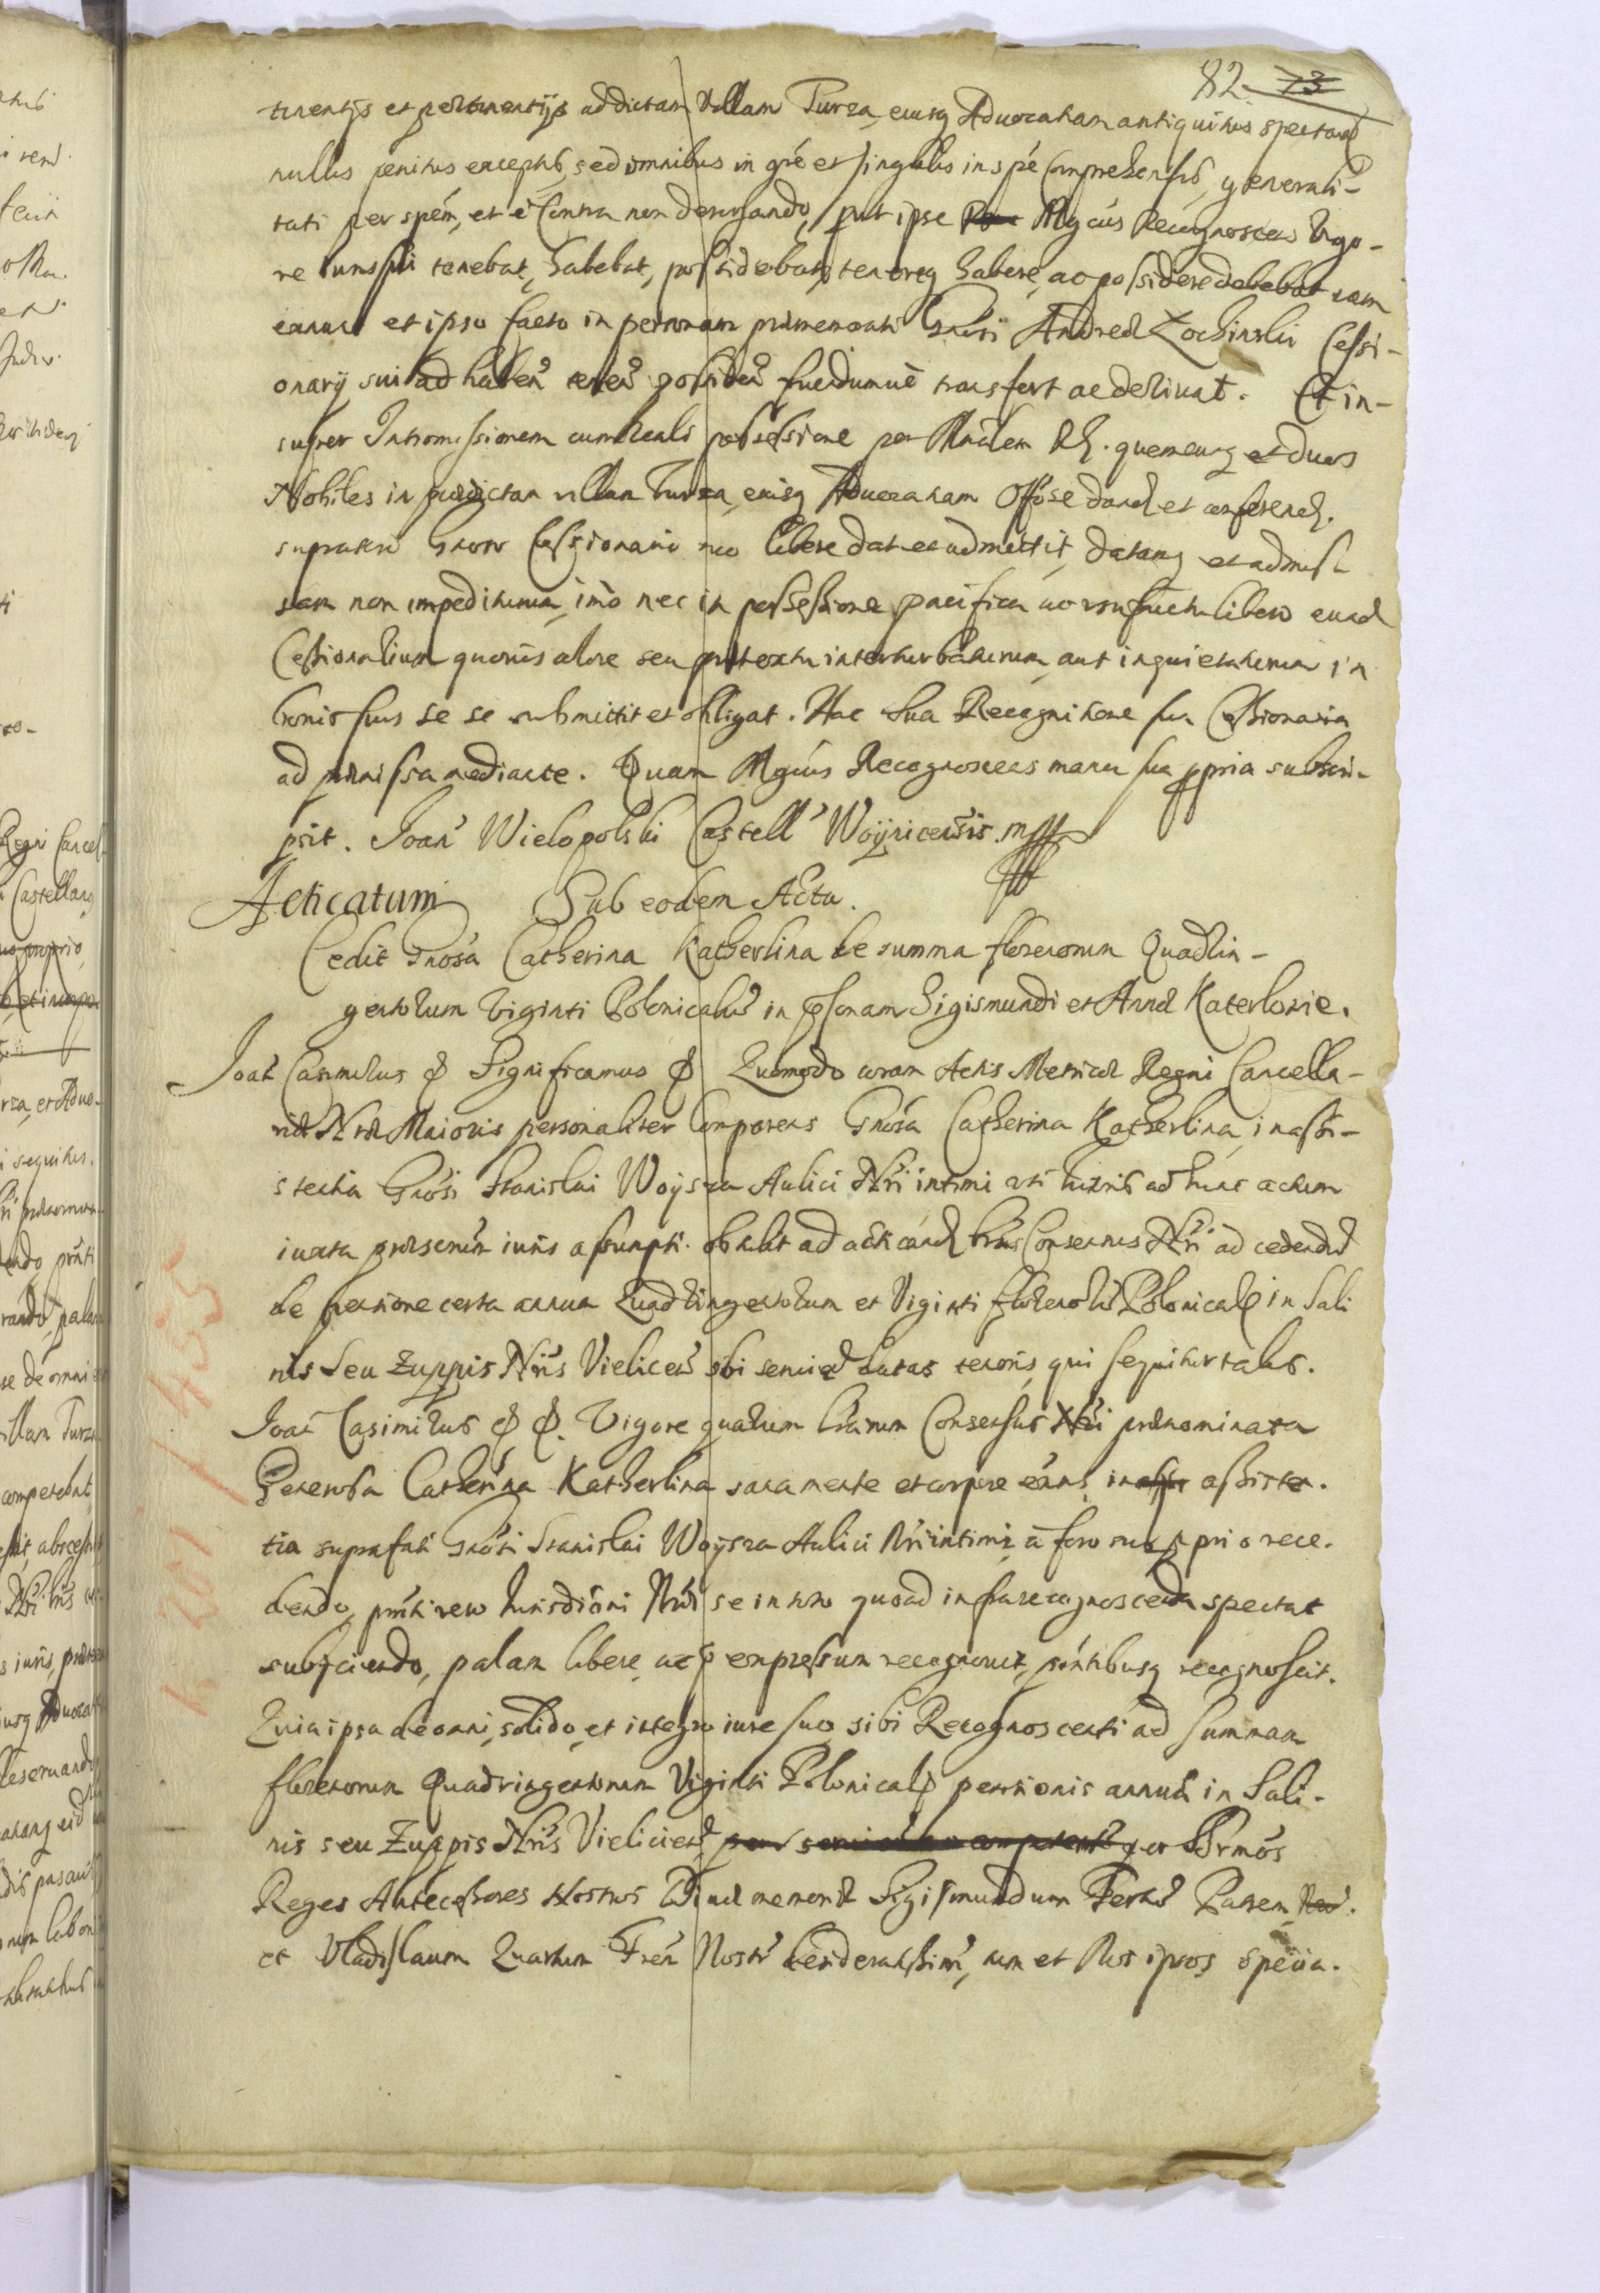 82. 73
tinentijs et pertinentijs ad dictam Villam Turza, eiusq Aduocatiam antiquitus spectan
nullis penitus exceptis, sed omnibus in gre et singulis in spe comprehensis, generali-
tati per spem, et e Contra non derogando, put ipse Mgcus Recognoscens Vigo-
re iuris sui tenebat, habebat, possidebat, tenereq habere, ac possidere debebat eam
et ipso facto in personam prmemorati Gnosi Andreae Zochinski Cessi-
onarij sui ad haben tenen possiden transfert ac deriuat. Et in-
super Intromissionem cum reali possessione per Mnlem R. quemcunq et duos
Nobiles in prdictam villam Turza, eiusq Aduocatiam Offose dand et conferend.
Gnoso Cessionario suo libere dat et admittit, datamq et admis-
sam non impediturum, imo nec in possessione pacifica ac vsufructu libero eund
Cessionarium quouis colore seu praetextu interturbaturum, aut inquietaturum in
bonis suis se se submittit et obligat. Hac Sua Recognitione sua Cessionaria
ad praemissa mediante. Quam Mgcus Recognoscens manu sua ppria subscri-
psit. Joan Wielopolski Castell Woynicensis. mpp
Acticatum Sub eodem Actu.
Cedit Gnosa Catherina Katherlina de summa florenorum Quadrin-
gentorum Viginti Polonicaliu in psonam Sigismundi et Annae Katerlonie.
Joan Casimirus & Significamus & Quomodo coram Actis Metricae Regni Cancella-
riae Nrae Maioris personaliter Comparens Gnosa Catherina Katherlina, in assi-
stentia Gnosi Stanislai Woysza Aulici Nri intimi uti tutoris ad hunc actum
iuxta praescrium iuris assumpti. obtulit ad acticand lras Consensus Nri ad cedendu
de pensione certa annua Quadringentorum et Viginti florenoru Polonical in Sali
nis seu Zuppis Nris Vielicen sibi seruien datas tenoris, qui sequitur talis.
Joan Casimirus & &. Vigore quarum lrarum Consensus Nri praenominata
Generosa Catherina Katherlina sana mente et corpore exns, in assi assisten-
tia suprafati Gnosi Stanislai Woysza Aulici Nri intimi, a foro suo pprio rece-
dendo, pnti vero Iurisdictioni Nrae se in toto quoad infrarecognoscenda spectat
subijciendo, palam libere, ac p expressum recognouit, pntibusq recognoscit.
Quia ipsa de omni, solido, et integro iure suo, sibi Recognoscenti ad summam
florenorum Quadringentorum Viginti Polonical pensionis annuae in Sali-
nis seu Zuppis Nris Vielicien per Srmos
Reges Antecessores Nostros Diuae memoriae Sigismundum Tertiu Patrem
et Vladislaum Quartum Fren Nostru desideratissim, tum et Nos ipsos specia-